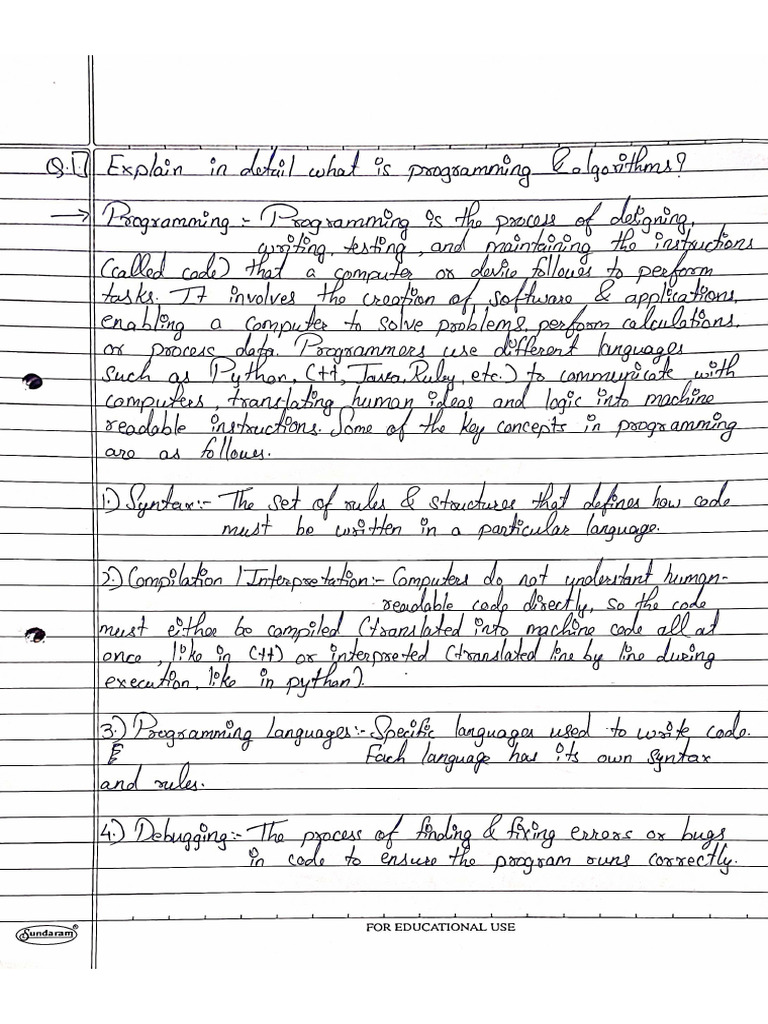 Q.1.] Explain in detail what is programming & algorithms?
→ Programming :- Programming is the process of designing,
writing, testing, and maintaining the instructions
(called code) that a computer or device follows to perform
tasks. It involves the creation of software & applications,
enabling a computer to solve problems, perform calculations,
or process data. Programmers use different languages
such as Python, C++, Java, Ruby, etc.) to communicate with
computers translating human ideas and logic into machine
readable instructions. Some of the key concepts in programming
are as follows.
1.) Syntax:- The set of rules & structures that defines how code
must be written in a particular language.
2.) Compilation / Interpretation:- Computers do not understant human-
readable code directly, so the code
must either be compiled (translated into machine code all at
once, like in C++) or interpreted (translated line by line during
execution, like in python).
3.) Programming Languages:- Specific languages used to write code.
Each language has its own syntax
and rules.
4.) Debugging:- The process of finding & fixing errors or bugs
in code to ensure the program runs correctly.
Sundaram®
FOR EDUCATIONAL USE